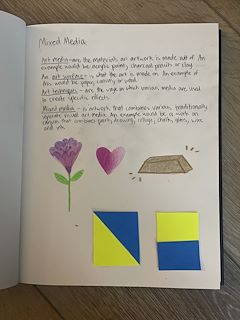 Mixed Media
Art media - are the materials an artwork is made out of. An
example would be acrylic paint, charcoal, pencils or clay.
An art surface - is what the art is made on. An example of
this would be paper, canvas or wood.
Art techniques - are the ways in which various media are used
to create specific effects.
Mixed media - is artwork that combines various traditionally
separate visual art media. An example would be a work on
canvas that combines paint, drawing, collage, chalk, glass, wire
and ink.